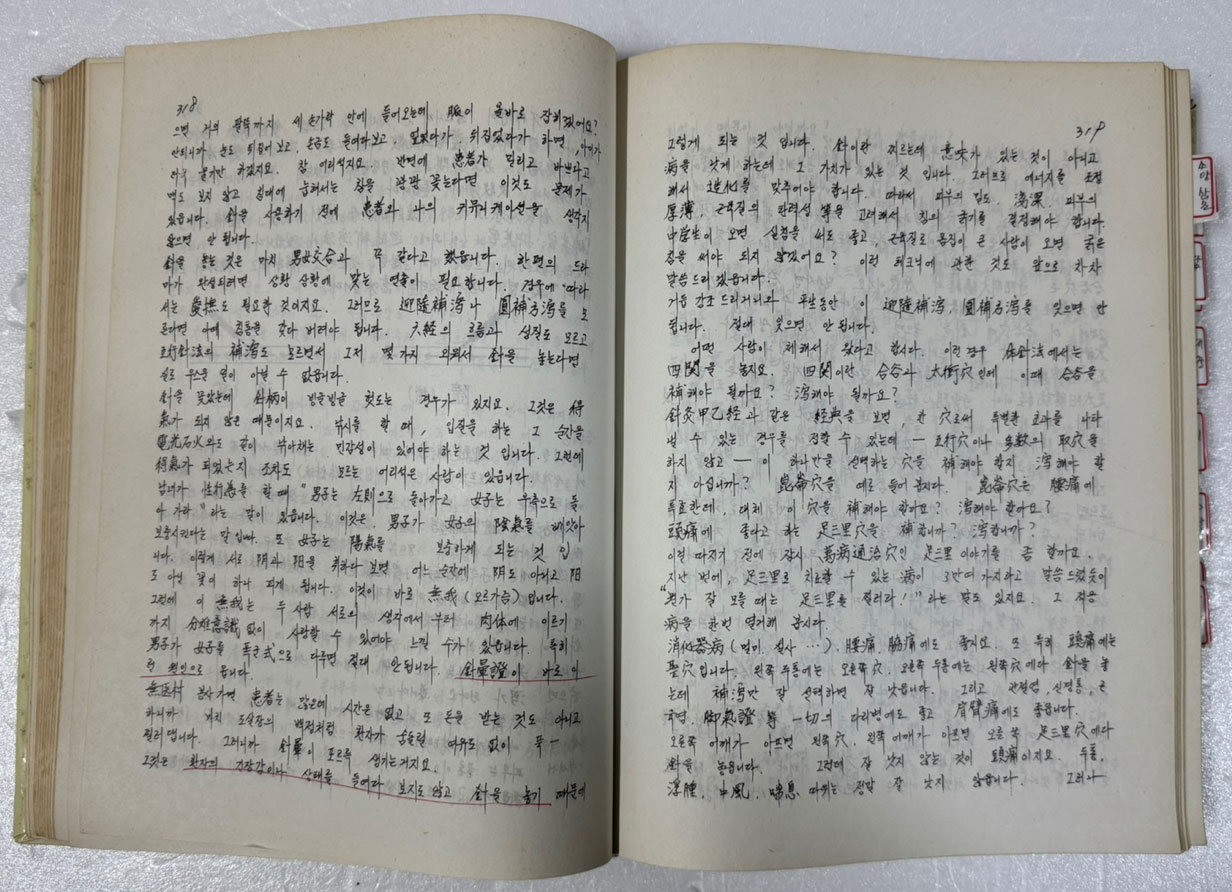 318
으면 거의 팔뚝까지 세 손가락 안에 들어오는데 脈이 올바로 잡히겠어요?
안되니까 손도 뒤집어 보고, 손금도 들여다보고, 뒤집었다가 하면,
하겠지요. 참 어리석지요. 반면에 患者가 밀리고 바쁘다고
맥도 보지 않고 침대에 눕혀서는 침을 꽝꽝 꽂는다면 이것도 문제가
있읍니다. 針을 사용하기 전에 患者와 나의 커뮤니케이션을 생각지
않으면 안 됩니다.
針을 놓는 것은 마치 男女交合과 꼭 같다고 했읍니다. 한편의 드라
마가 완성되려면 상황 상황에 맞는 연출이 필요합니다. 경우에 따라
서는 愛撫도 필요한 것이지요. 그러므로 迎隨補瀉나 圓補方瀉를 모
른다면 아예 침통을 갖다 버려야 됩니다. 六経의 흐름과 성질도 모르고
五行針法의 補瀉도 모르면서 그저 몇가지 외워서 針을 놓는다면
실로 우스운 일이 아닐 수 없읍니다.
針을 꽂았는데 針柄이 빙글빙글 헛도는 경우가 있지요. 그것은 得
氣가 되지 않은 때문이지요. 낚시를 할 때, 입질을 하는 그 순간을
電光石火와도 같이 낚아채는 민감성이 있어야 하는 것 입니다. 그런데
得氣가 되었는지 조차도 모르는 어리석은 사람이 있읍니다.
남녀가 性行爲를 할 때 "男子는 左則으로 돌아가고 女子는 우측으로 돌
아 가라"라는 말이 있읍니다. 이것은, 男子가 女子의 陰氣를 빼앗아
보충시킨다는 말 입니다. 또 女子는 陽氣를 보습하게 되는 것 입
니다. 이렇게 서로 阴과 阳을 취하다 보면 어느 순간에 阴도 아니고 阳
도 아닌 꽃이 하나 피게 됩니다. 이것이 바로 無我(오르가슴)입니다.
그런데 이 無我는 두 사람 서로의 생각에서 부터 肉体에 이르기
까지 分離意識 없이 사랑할 수 있어야 느낄 수가 있읍니다. 특히
男子가 女子를 폭군式으로 다루면 절대 안됩니다. 針暈證이 바로 이
런 원인으로 옵니다.
無医村 봉사가면 患者는 많은데 시간은 없고 또 돈을 받는 것도 아니고
하니까 마치 도살장의 백정처럼 환자가 숨돌릴 여유도 없이 푹-
찔러 댑니다. 그러니까 針暈이 모르륵 생기는거지요.
그것은 환자의 건강감이나 상태를 들여다 보지도 않고 針을 놓기 때문에
319
그렇게 되는 것 입니다. 針이란 찌르는데 意味가 있는 것이 아니고
病을 낫게 하는데 그 가치가 있는 것 입니다. 그러므로 에너지를 조절
해서 造化를 맞추어야 합니다. 따라서 피부의 밀도, 淺深, 피부의
厚薄, 근육질의 탄력성 等을 고려해서 침의 굵기를 결정해야 합니다.
中学生이 오면 실침을 써도 좋고, 근육질로 몸집이 큰 사람이 오면 굵은
침을 써야 되지 않겠어요? 이런 테크닉에 관한 것도 앞으로 차차
말씀 드리겠읍니다.
거듭 강조 드리거니와 평생동안 이 迎隨補瀉, 圓補方瀉를 잊으면 안
됩니다. 절대 잊으면 안 됩니다.
어떤 사람이 체해서 왔다고 합시다. 이런 경우 体針法에서는
四関을 놓지요. 四関이란 合谷과 太衝穴인데 이때 合谷을
補해야 될까요? 瀉해야 될까요?
針灸甲乙経과 같은 経典을 보면, 한 穴로써 특별한 효과를 나타
낼 수 있는 경우를 접할 수 있는데 — 五行穴이나 多数의 取穴을
하지 않고 — 이 하나만을 선택하는 穴을 補해야 할지 瀉해야 할
지 아십니까? 崑崙穴을 예로 들어 봅시다. 崑崙穴은 腰痛에
특효한데, 대체 이 穴을 補해야 할아요? 瀉해야 할아요?
頭痛에 좋다고 하는 足三里穴을 補합니까? 瀉합니까?
이럴 따지기 전에 잠시 萬病通治穴인 足三里 이야기를 좀 할까요.
지난 번에, 足三里로 치료할 수 있는 病이 3만여 가지라고 말씀 드렸듯이
"뭔가 잘 모를 때는 足三里를 찔러라!"라는 말도 있지요. 그 적응
病을 한번 열거해 봅시다.
消化器病(멀미, 설사 …), 腰痛, 脇痛에도 좋지요. 또 특히 頭痛에는
聖穴입니다. 왼쪽 두통에는 오른쪽穴, 오른쪽 두통에는 왼쪽穴에다 針을 놓
는데 補瀉만 잘 선택하면 잘 낫읍니다. 그리고 관절염, 신경통, 근
육염, 脚氣證 等 一切의 다리병에도 좋고 肩臂痛에도 좋읍니다.
오른쪽 어깨가 아프면 왼쪽穴, 왼쪽 어깨가 아프면 오른 쪽 足三里穴에다
針을 놓읍니다. 그런데 잘 낫지 않는 것이 頭痛이지요. 두통,
浮腫, 中風, 喘息 따위는 정말 잘 낫지 않읍니다. 그러나